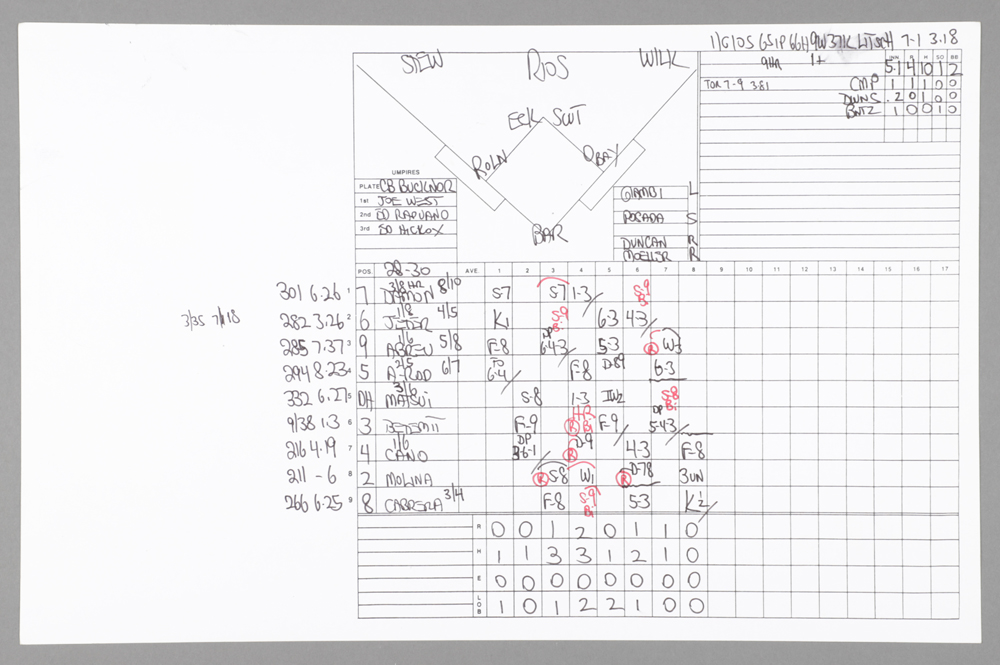 11G10S 65IP 66H 9W 37K LITSCH 7-1 3.18
9HR 1+
STEW RIOS WILK
INN R H SO BB
5.1 4 10 1 2
TOR 7-9 3.81
CMP 1 1 1 0 0
DWNS .2 0 1 0 0
BNTZ 1 0 0 1 0
EcK SCUT
ROLN OBAY
BAR
UMPIRES
PLATE CB BUCKNOR
1st JOE WEST
2nd ED RAPUANO
3rd ED HICKOX
GIAMBI L
POSADA S
DUNCAN R
MOELLER R
28-30
POS. AVE. 1 2 3 4 5 6 7 8 9 10 11 12 13 14 15 16 17
301 6.26 1 7 3/8 HR DAMON 8/10 S-7 S7 1-3 S-9 Bi
3/35 7/118 282 3.26 2 6 1/8 JETER 4/5 K1 S-9 Bi 6-3 4-3
285 7.37 3 9 1/6 ABREU 5/8 F-8 DP 6-4-3 5-3 R W3
294 8.23 4 5 2/5 A-ROD 6/7 FO 6-4 F-8 D-89 6-3
332 6.27 5 DH 3/6 MATSUI S-8 1-3 IW2 S-8 Bi
9/38 1.3 6 3 BETEMIT F-9 HR R Bi F-9 DP 5-4-3
216 4.19 7 4 1/6 CANO DP 3-6-1 D-9 R 4-3 F-8
211 -6 8 2 MOLINA R S-8 W1 R D-78 3UN
266 6.25 9 8 CABRERA 3/4 F-8 S-9 Bi 5-3 K½
R 0 0 1 2 0 1 1 0
H 1 1 3 3 1 2 1 0
E 0 0 0 0 0 0 0 0
LOB 1 0 1 2 2 1 0 0